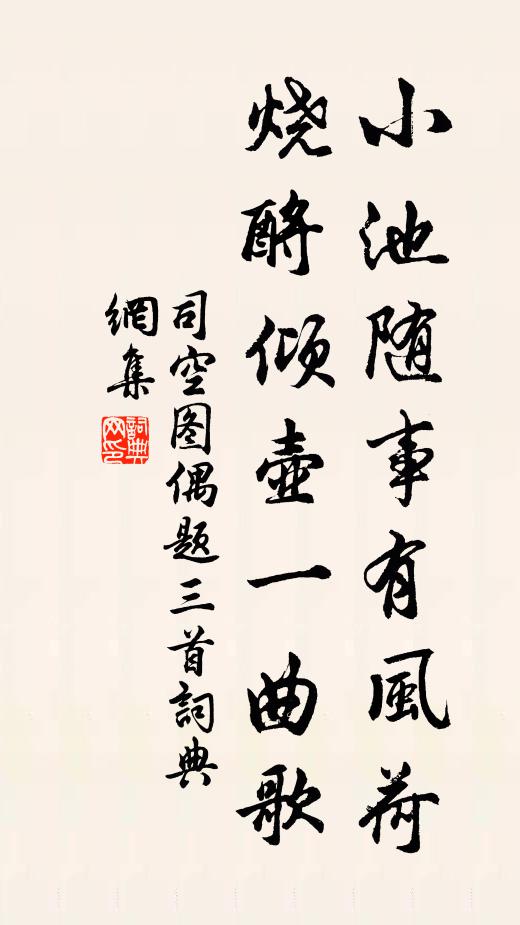 小池随事有風荷
烧酹倾壶一曲歌
司空图偶题三首詞典
網集
詞典
网印